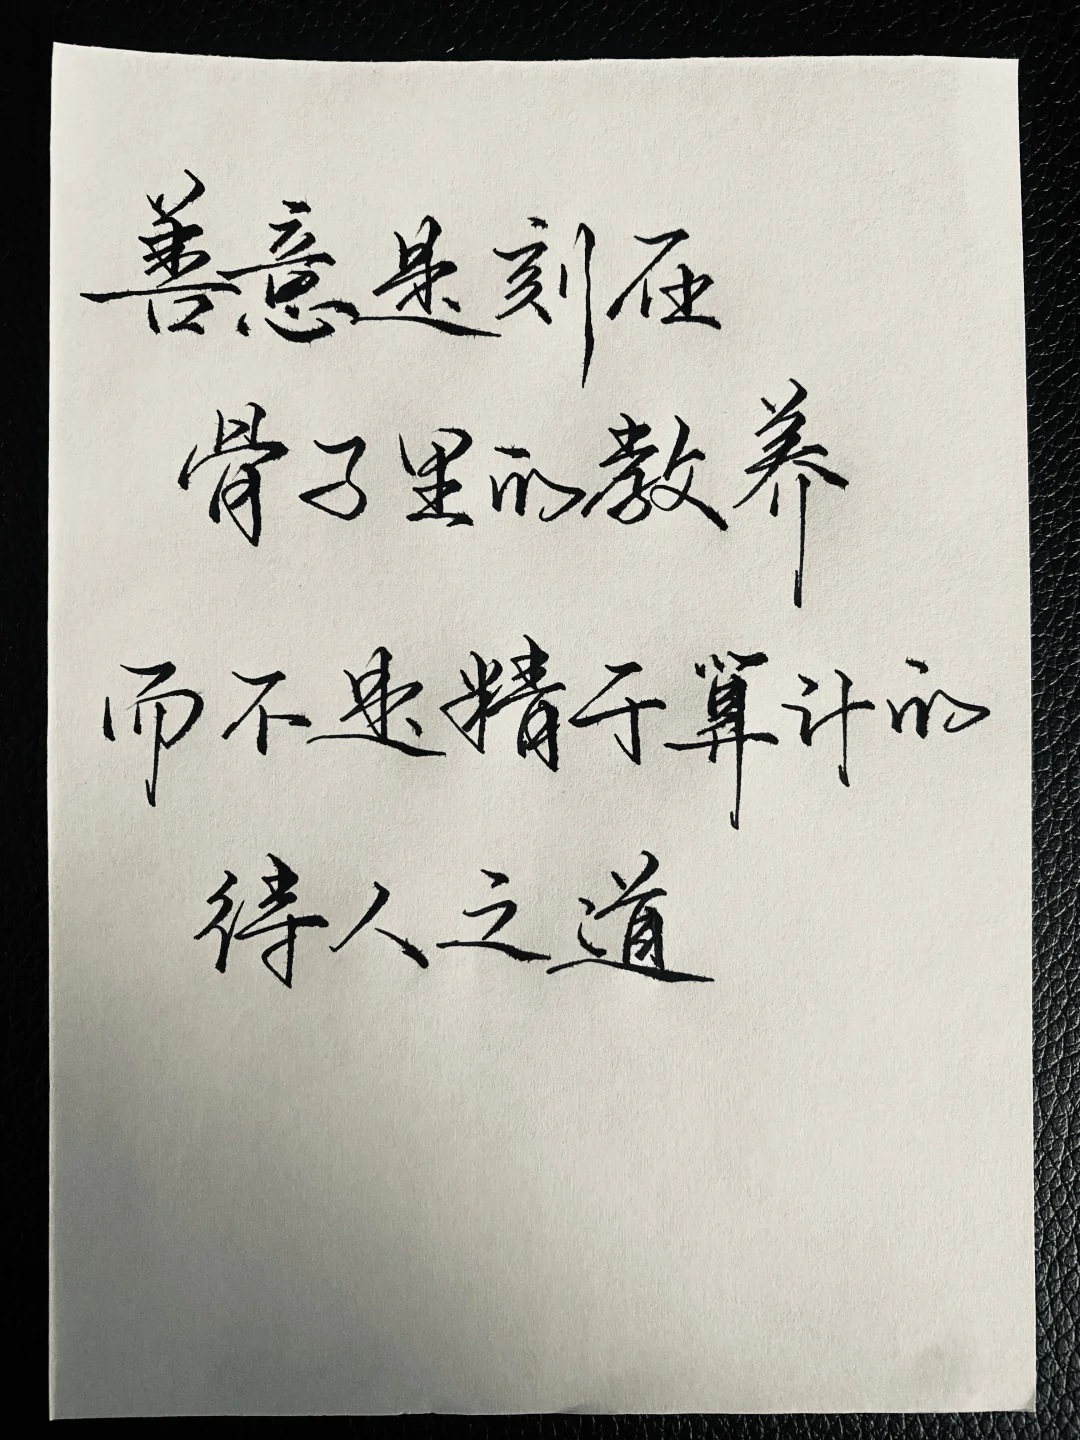 善意是刻在
骨子里的教养
而不是精于算计的
待人之道